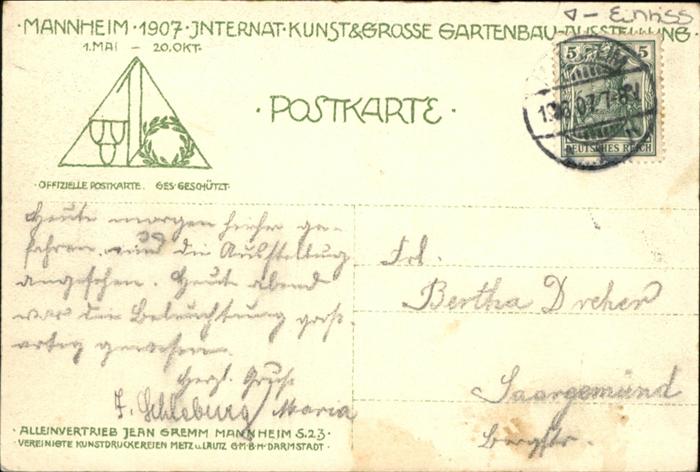 ▷– Einriss
·MANNHEIM·1907·INTERNAT·KUNST&GROSSE GARTENBAU-AUSSTELLUNG·
1.MAI – 20.OKT·
·POSTKARTE·
5 5
DEUTSCHES REICH
·OFFIZIELLE POSTKARTE. GES·GESCHÜTZT·
Heute morgen hierher ge-
fahren, und die Ausstellung
angesehen. Heute abend
war die Beleuchtung groß-
artig gewesen.
Herzl. Gruß
Maria
Frl.
Bertha Dreher
Saargemünd
Bergstr.
ALLEINVERTRIEB JEAN GREMM MANNHEIM S.2.3·
·VEREINIGTE KUNSTDRUCKEREIEN METZ u. LAUTZ G·M·B·H· DARMSTADT·